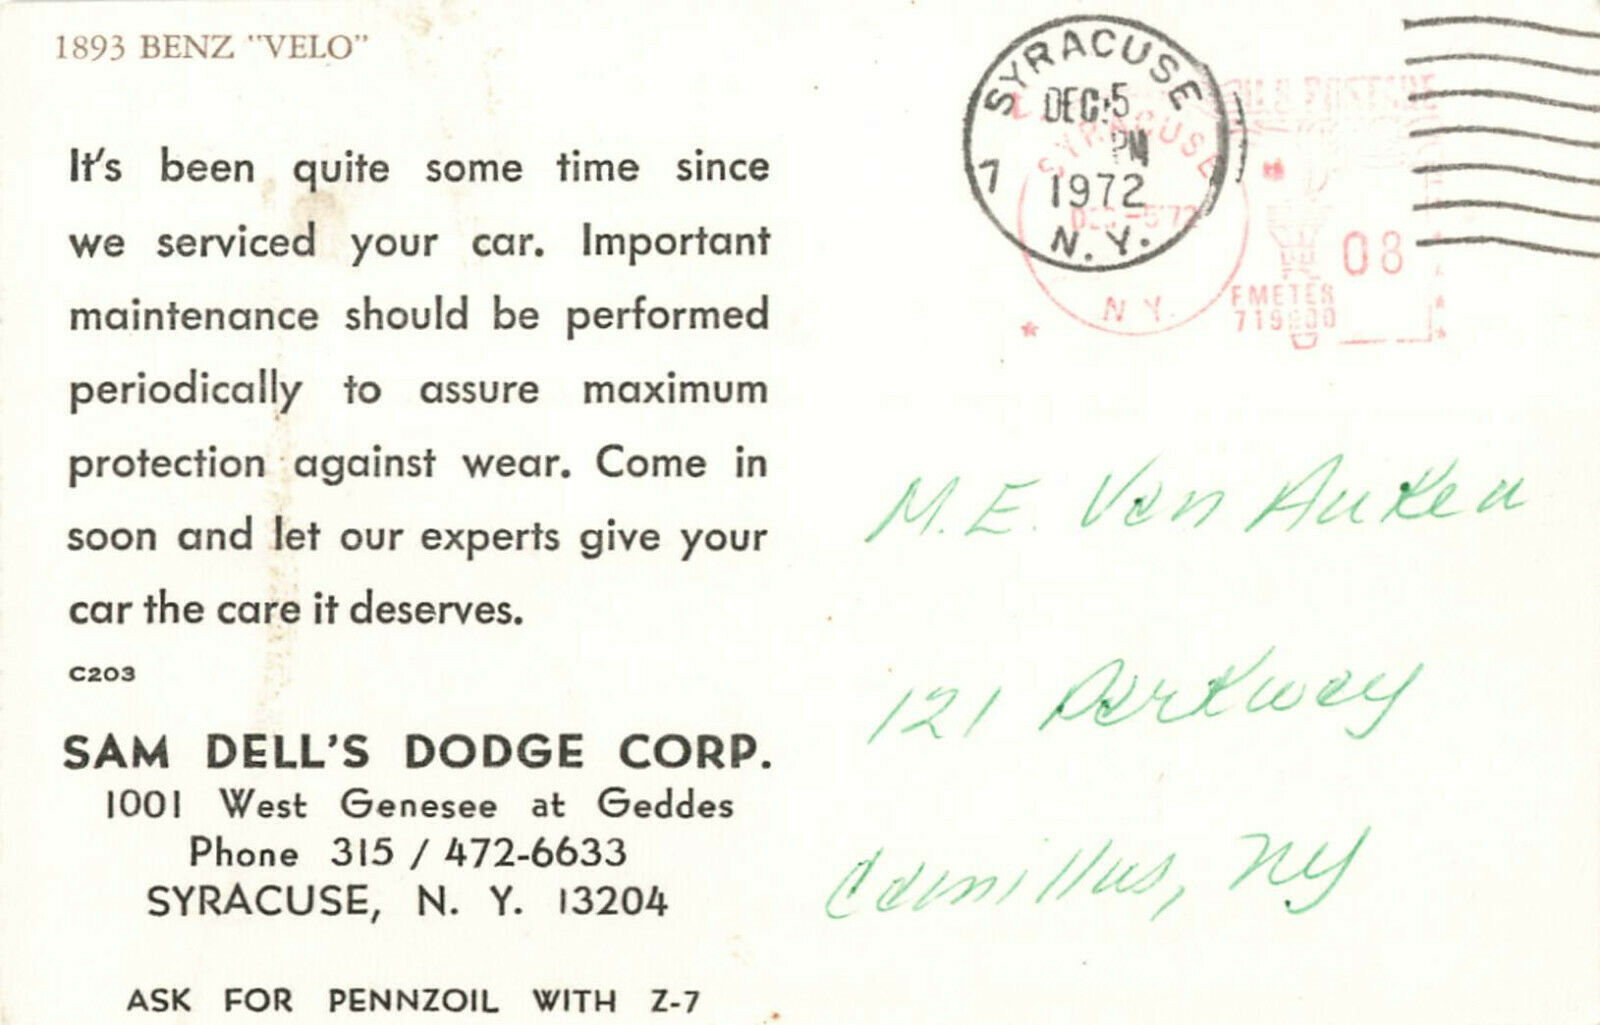 1893 BENZ "VELO"
It's been quite some time since
we serviced your car. Important
maintenance should be performed
periodically to assure maximum
protection against wear. Come in
soon and let our experts give your
car the care it deserves.
C203
SAM DELL'S DODGE CORP.
1001 West Genesee at Geddes
Phone 315 / 472-6633
SYRACUSE, N. Y. 13204
ASK FOR PENNZOIL WITH Z-7
SYRACUSE
DEC 5
PM
1972
7
N.Y.
SYRACUSE
DEC -5 '72
N Y.
POSTAGE
08
METER
M.E. Van Auken
121 Parkway
Camillus, NY